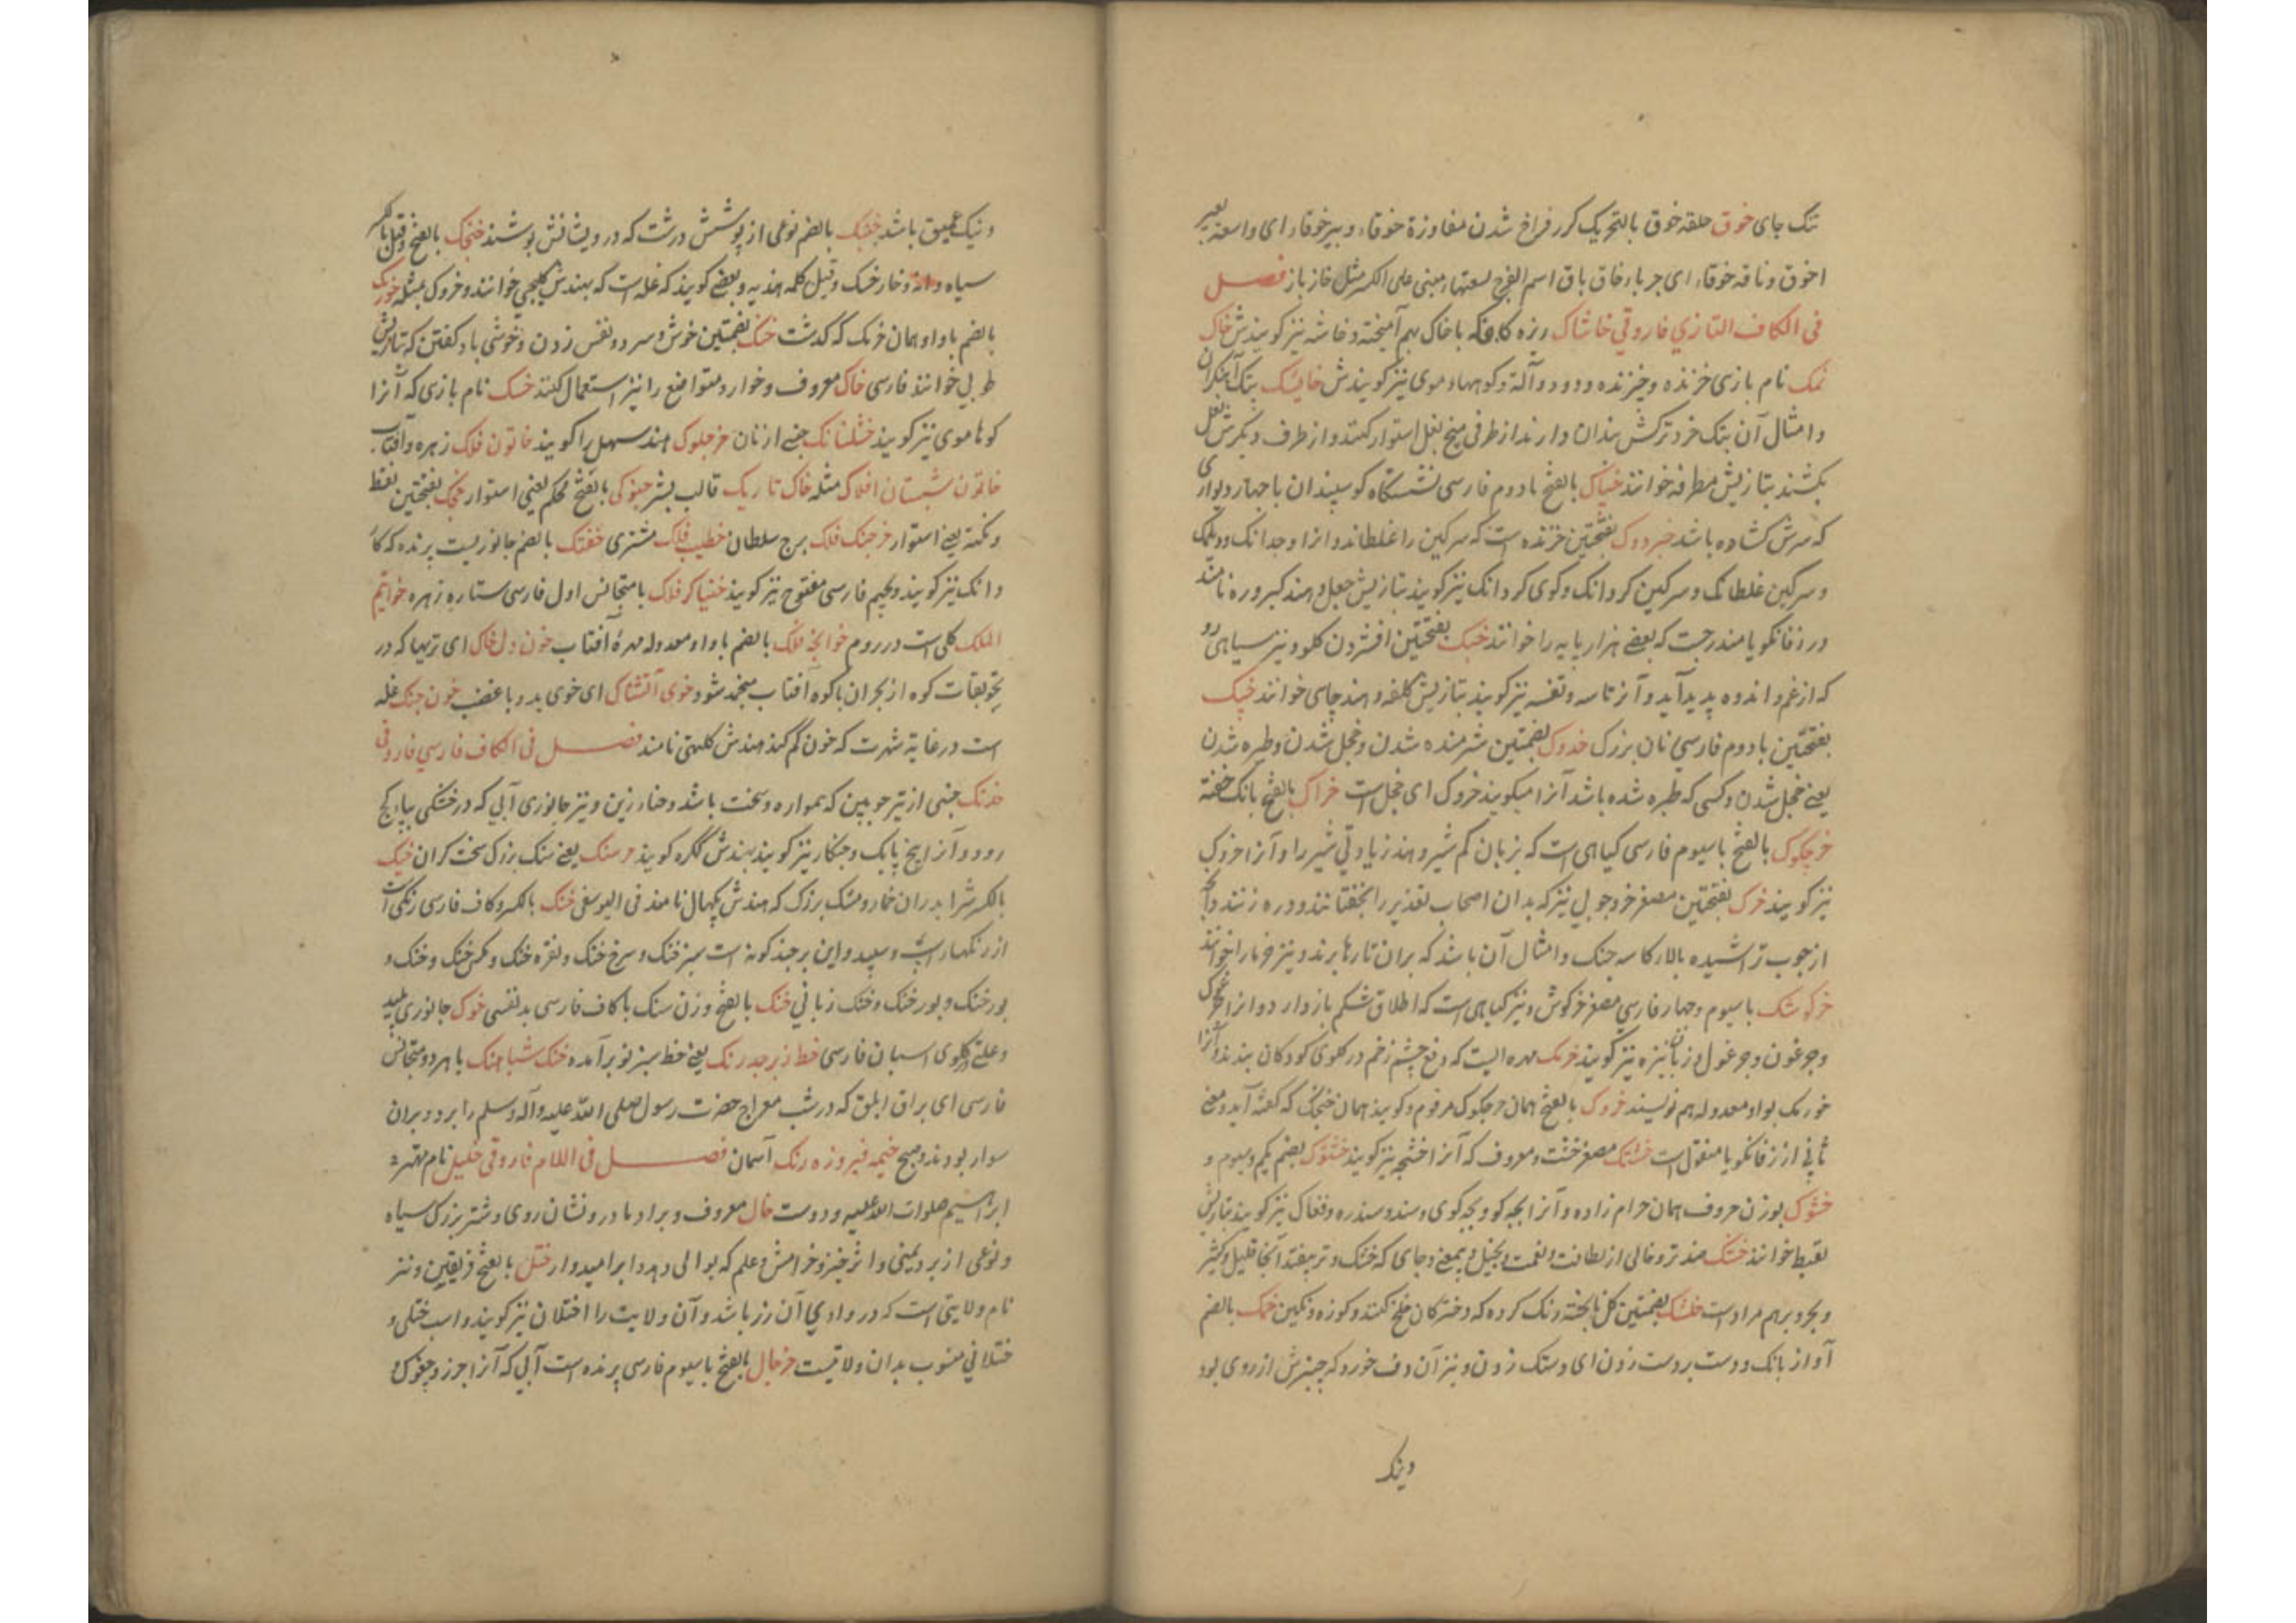 تنک جای خوق حلقه خوق بالتحریک کر فراخ شدن مفاوزة خوقاء و بیر خوقاء ای واسعة بعیر
اخوق و ناقه خوقاء ای جربا خاق باق اسم الفرج لسعتها مبنی علی الکسر مثل خاز باز فصل
فی الکاف التازی فاروقی خاشاک ریزه کاه که با خاک بهم آمیخته و خاشه نیز کویندش خاک
نمک نام بازی خزنده و خیزنده و دو آلة و کوهها و موی نیز کویندش خایسک پتک آهنکران
و امثال آن پتک خرد ترکش بندان دارند از طرفی میخ نعل استوار کنند و از طرف دیکرش نعل
بکشند بتازیش مطرقه خوانند خباک بالفتح با دوم فارسی نشستکاه کوسپندان با چهار دیواری
که سرش کشاده باشد خبزدوک بفتحتین خزنده است که سرکین را غلطاند و انرا وجدانک و دلمک
و سرکین غلطانک و سرکین کردانک و کوی کردانک نیز کویند بتازیش جعل و هند کبروره نامند
در زفانکویا مندرجست که بعضی هزار پایه را خوانند خبک بفتحتین افشردن کلو و نیز سیاهی رو
که از غم و اندوه پدید آید و آنرا تاسه و تفسه نیز کویند بتازیش کلفه و هند چهای خوانند خپک
بفتحتین با دوم فارسی نان بزرک خدوک بضمتین شرمنده شدن و خجل شدن و طیره شدن
یعنی خجل شدن و کسی که طیره شده باشد آنرا میکویند خدوک ای خجل است خراک بالفتح بانک خفته
خرچکوک بالفتح با سیوم فارسی کیاهی است که بزبان کم شیر دهند زیادتی شیر را و آنرا خروک
نیز کویند خرک بفتحتین مصغر خر و چوبی نیز که بدان اصحاب تعذیر را بخفتانند و دره زنند و آنچه
از چوب تراشیده بالاء کاسه چنک و امثال آن باشد که بران تارها برند و نیز خرما را خوانند
خرکوشک با سیوم و چهار فارسی مصغر خرکوش و نیز کیاهی است که اطلاق شکم باز دارد و انرا
و چرغون و چرغول و زبان بزه نیز کویند خرمک مهره ایست که دفع چشم زخم در کلوی کودکان بندند و آنرا
خورمک بواو معدوله هم نویسند خروک بالفتح همان خرچکوک مرقوم و کویند همان خبجک که کفته آید و معنی
ثانی از زفانکویا منقول است خشتک مصغر خشت و معروف که آنرا خشتچه نیز کویند خشتوک بضم یکم و سیوم و
خشوک بوزن حروف همان حرام زاده و آنرا بچه کو و بچه کوی و سند و سندره و فغاک نیز کویند بتازیش
لقیط خوانند خشک ضد تر و خالی از لطافت و نعمت و بخیل و بیمعنی و جای که خشک و تر بیفتد آنجا قلیل و کثیر
و بحر و بر هم مراد است خلشک بضمتین کل نا پخته و رنک کرده که دخترکان طرح کنند و کوزه رنکین خمک بالضم
آواز بانک و دست بر دست زدن ای دستک زدن و نیز آن دف خورد که چنبرش از روی بود
و نیک
و نیک عمیق باشد خنبک بالضم نوعی از پوشش درشت که درویشانش پوشند خنجک بالفتح و قیل بالکسر
سیاه دانه و خار خسک و قیل کلمه هندیه و بعضی کویند که غله است که بهندش کلیجی خوانند و خروک مثله خورمک
بالضم با واو همان خرمک که کذشت خنک بضمتین خوش و سرد و نفس زدن و خوشی باد کفتن که بتازیش
طوبی خوانند فارسی خاک معروف و خوار و متواضع را نیز استعمال کنند خسک نام بازی که آنرا
کوها موی نیز کویند خشکنانک جنسی از نان خرجلوک هند سهل را کویند خاتون فلک زهره و آفتاب
خاتون شبستان افلاک مثله خاک تاریک قالب بشر خبوکی بالفتح محکم یعنی استوار خبک بفتحتین نقط
و نکته یعنی استوار خرچنک فلک برج سلطان خطیب فلک مشتری خفتک بالضم جانوریست پرنده که
دانک نیز کویند و بجیم فارسی مفتوح نیز کویند خنیاکر فلک با متجانس اول فارسی ستاره زهره خواتیم
الملک کلی است در روم خوایجه فلک بالضم با واو معدوله مهره آفتاب خون دل خاک ای تریها که در
بتخویفات کوه از بحران با کوه آفتاب منجمد شود خوی آتشناک ای خوی بد و با غضب خون جنک غله
است در غایة شهرت که خون کم کند هندش کلهتی نامند فصل فی الکاف فارسی فاروقی
خدنک جنسی از تیر چوبین که همواره و سخت باشد و حناء زین و نیز جانوری آبی که در خشکی بیاید کج
رود و آنرا پنج پایک و چنکار نیز کویند بهندش ککره کویند خرسنک یعنی سنک بزرک سخت کران خیک
بالکسر شراب دران خمار و مشک بزرک که هندش پکهال نامند فی الیوسفی خنک بالکسر و کاف فارسی رنکی است
از رنکهاء اسپ و سپید و این بر چند کونه است سبز خنک و سرخ خنک و نقره خنک و مکس خنک و خنک و
بور خنک و بور خنک و خنک زبانی خنک بالفتح وزن سنک با کاف فارسی بدنفسی خوک جانوری پلید
و علتی در کلوی اسبان فارسی خط زبرجد رنک یعنی خط سبز نو برآمده خنک شباهنک با هر دو متجانس
فارسی ای براق ابلق که در شب معراج حضرت رسول صلی الله علیه و آله و سلم را برد و بران
سوار بودند و صبح خیمه فیروزه رنک آسمان فصل فی اللام فاروقی خلیل نام مهتر
ابراهیم صلوات الله علیه و دوست خال معروف و برادر مادر و نشان روی و شتر بزرک سیاه
و نوعی از برد یمنی و اثر خیر و خرامش و علم که بوالی دهد و ابر امیدوار ختل بالفتح فریقین و نیز
نام ولایتی است که در وادی آن رز باشد و آن ولایت را اختلان نیز کویند و اسب ختلی و
ختلانی منسوب بدان ولایت خرچال بالفتح با سیوم فارسی پرنده است آبی که آنرا جرز و چغوک